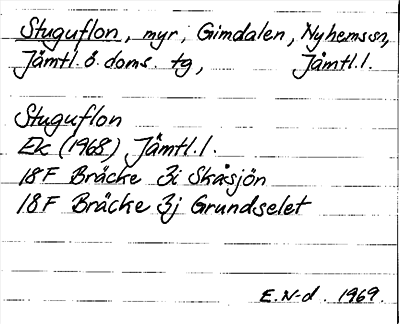 Stuguflon, myr, Gimdalen, Nyhems sn,
Jämtl. ö. doms. tg, Jämtl. l.
Stuguflon
Ek (1968) Jämtl. l.
18F Bräcke 3i Skåsjön
18F Bräcke 3j Grundselet
E. N-d. 1969.